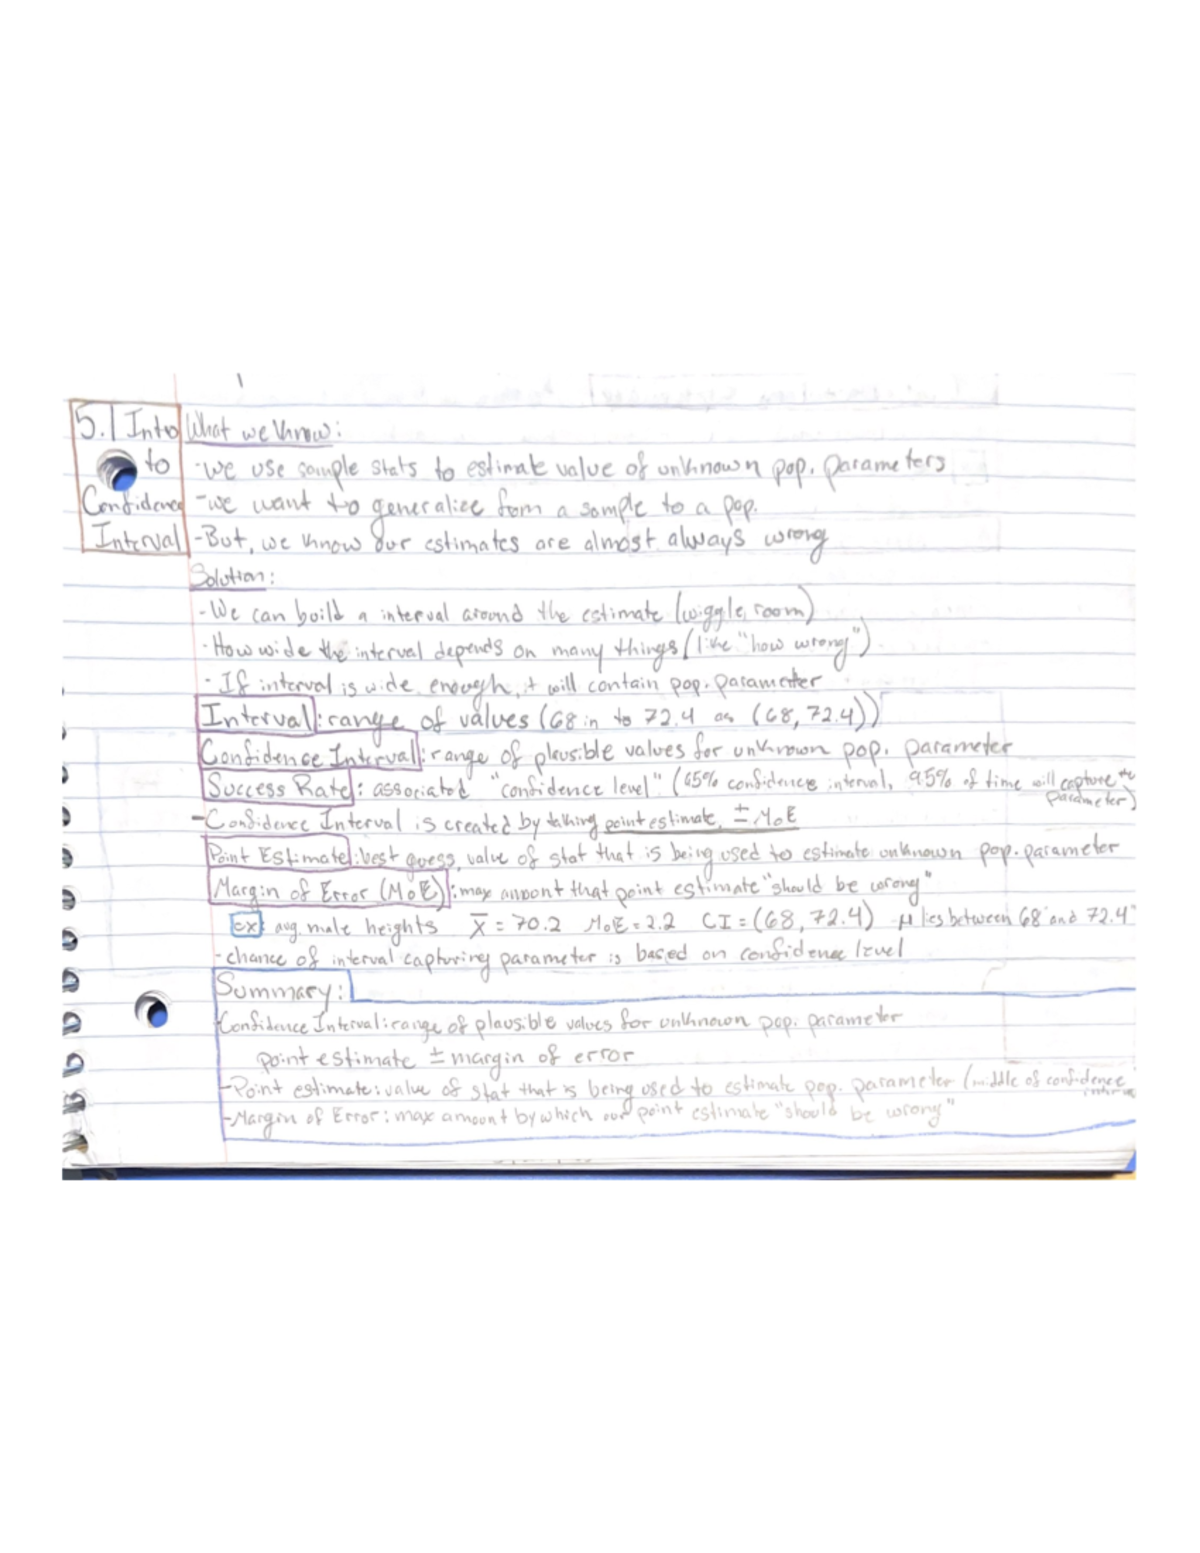 5.1 Intro to Confidence Interval
What we know:
-we use sample stats to estimate value of unknown pop. parameters
-we want to generalize from a sample to a pop.
-But, we know our estimates are almost always wrong
Solution:
-We can build a interval around the estimate (wiggle room)
-How wide the interval depends on many things (like "how wrong")
-If interval is wide enough, it will contain pop. parameter
Interval: range of values (68 in to 72.4 as (68, 72.4))
Confidence Interval: range of plausible values for unknown pop. parameter
Success Rate: associated "confidence level" (95% confidence interval, 95% of time will capture the parameter)
-Confidence Interval is created by taking point estimate, ± MoE
Point Estimate: best guess, value of stat that is being used to estimate unknown pop. parameter
Margin of Error (MoE): max amount that point estimate "should be wrong"
ex: avg. male heights x̄ = 70.2 MoE = 2.2 CI = (68, 72.4) μ lies between 68" and 72.4"
-chance of interval capturing parameter is based on confidence level
Summary:
Confidence Interval: range of plausible values for unknown pop. parameter
point estimate ± margin of error
-Point estimate: value of stat that is being used to estimate pop. parameter (middle of confidence
-Margin of Error: max amount by which our point estimate "should be wrong"